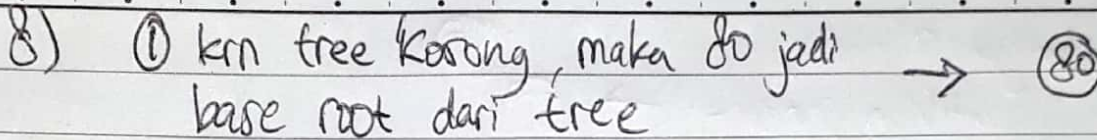 8) ① krn tree kosong, maka 80 jadi → 80
base root dari tree